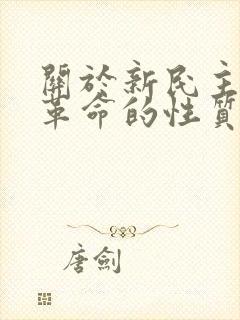 關於新民主
革命的性質
唐劍